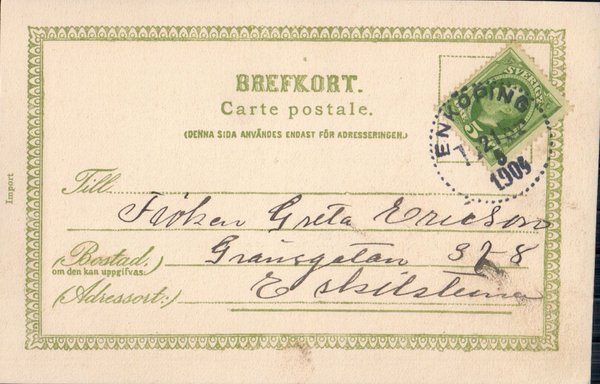 BREFKORT.
Carte postale.
(DENNA SIDA ANVÄNDES ENDAST FÖR ADRESSERINGEN.)
SVERIGE
5
ENKÖPING
1905
Till
Fröken Greta Ericson
(Bostad:)
om den kan uppgifvas:
37-8
(Adressort:)
Eskilstuna
Import